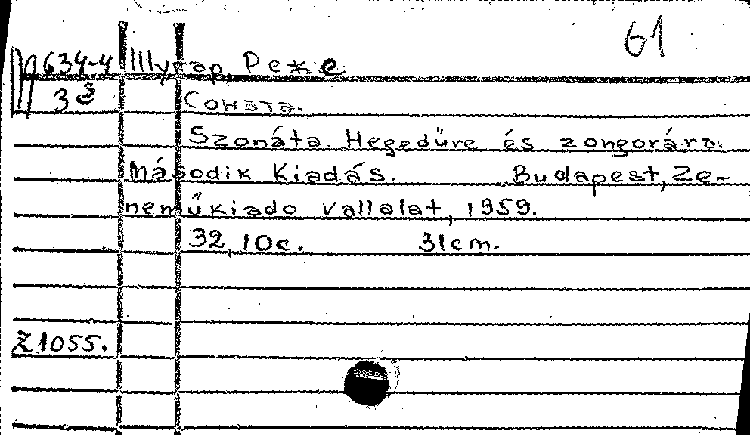 61
П634-4 Шугар, Реже
3
Соната.
Szonáta Hegedüre és zongorára.
második Kiadás. Budapest, Ze-
neműkiado vallalat, 1959.
32, 10c. 31cm.
Z1055.